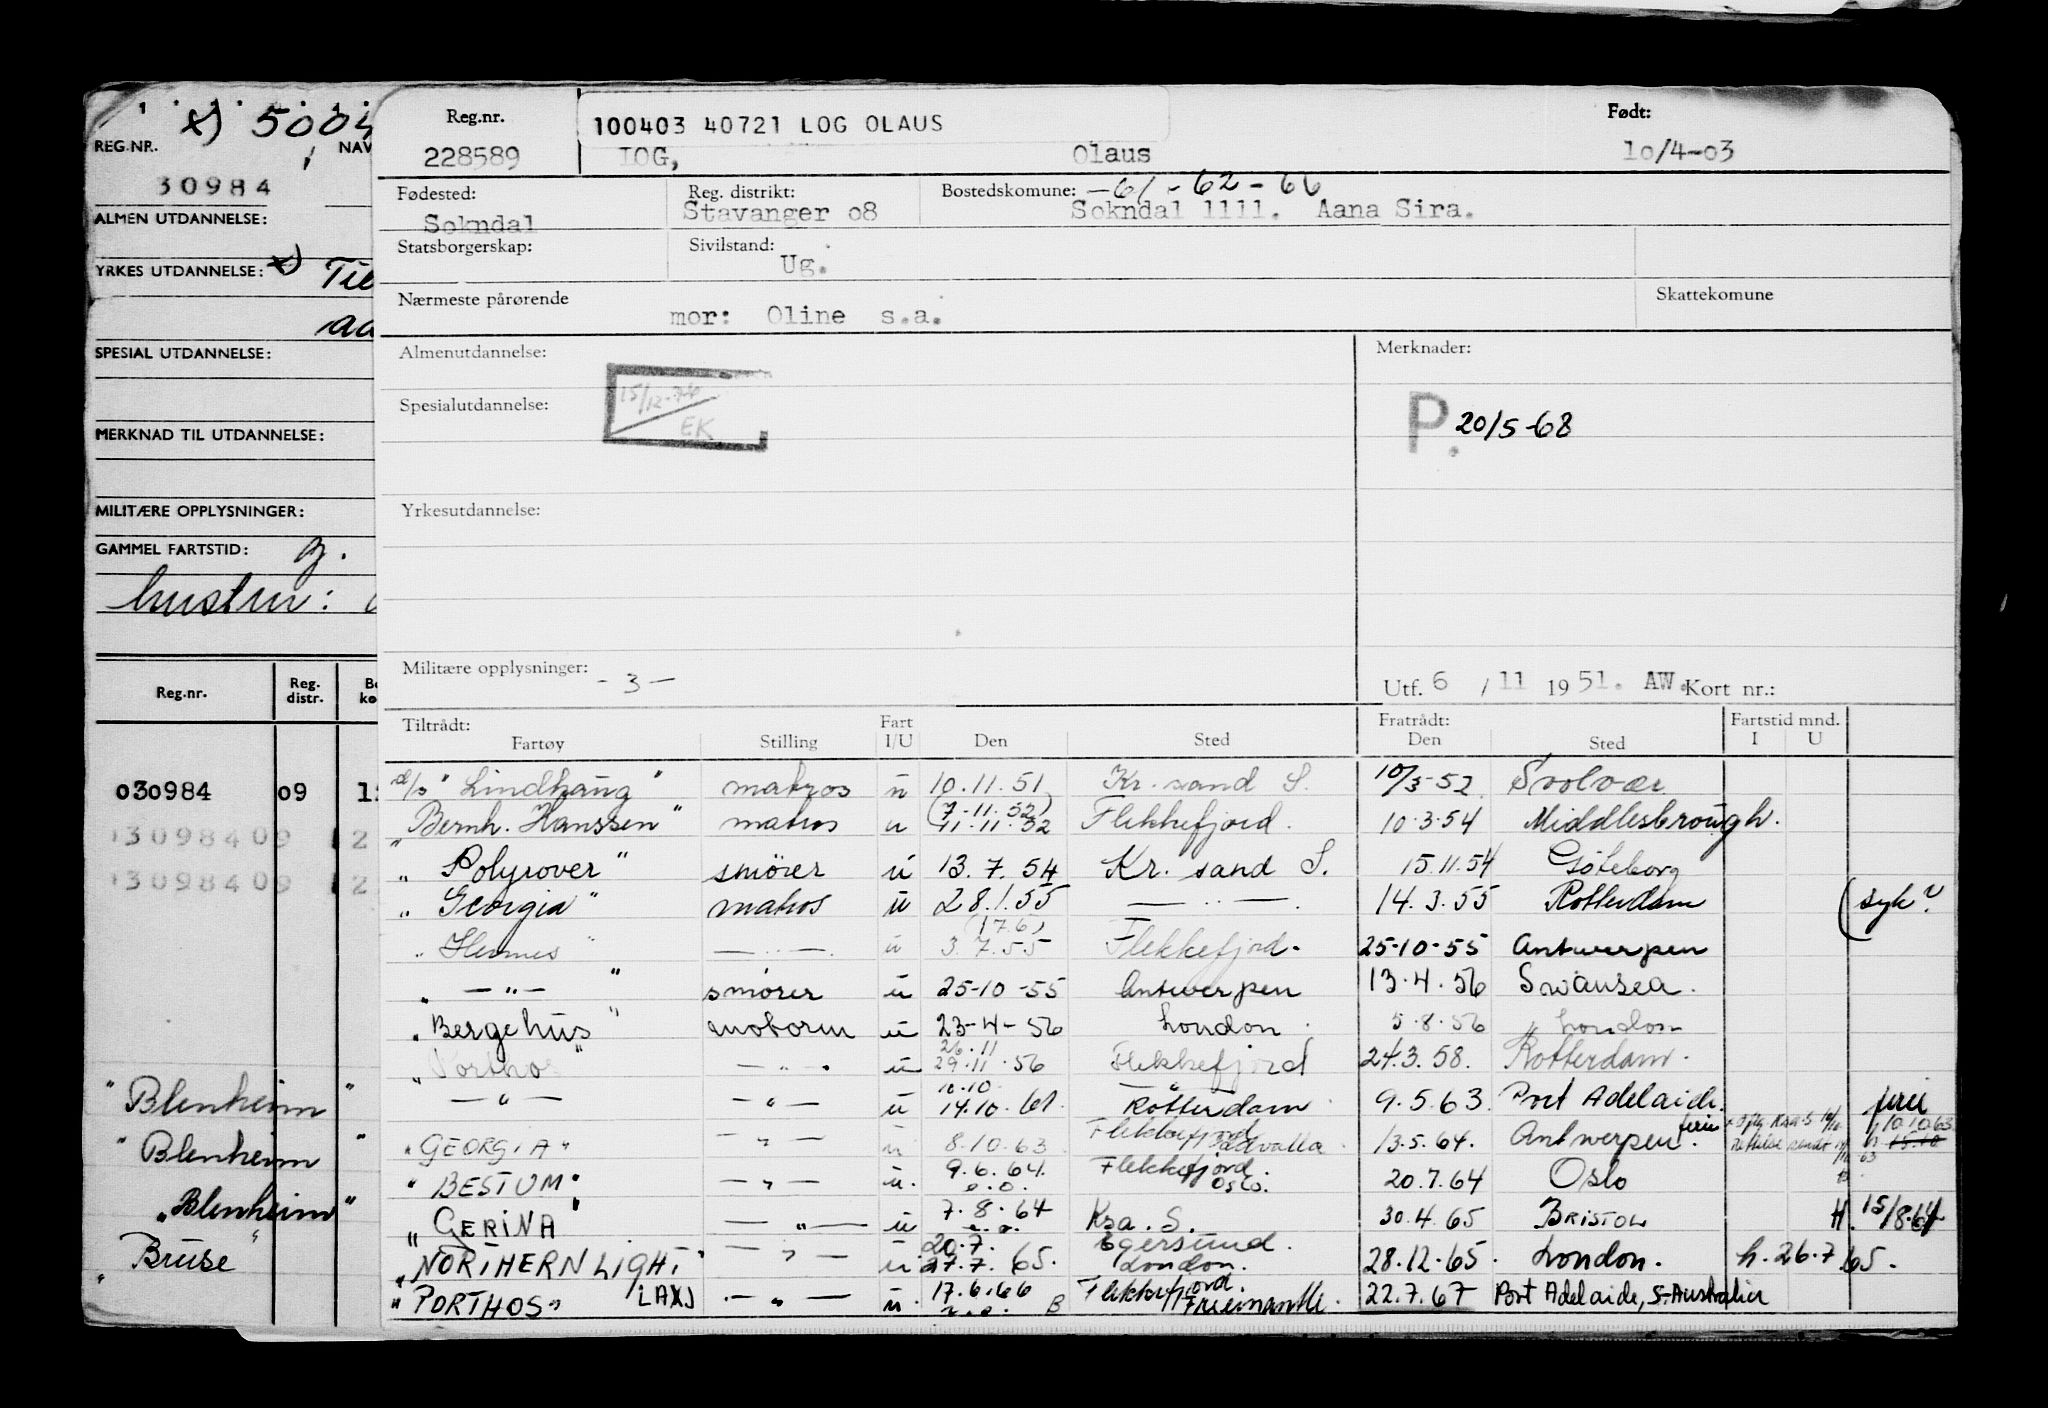 x) 5004
REG.NR. NAV
30984
ALMEN UTDANNELSE:
YRKES UTDANNELSE: x)
SPESIAL UTDANNELSE:
MERKNAD TIL UTDANNELSE:
MILITÆRE OPPLYSNINGER:
GAMMEL FARTSTID:
hustru:
Reg.nr. Reg. distr.
030984 09 1
13098409 2
13098409 2
"Blenheim"
"Blenheim"
"Blenheim"
"Bruse"
Reg.nr. 100403 40721 LOG OLAUS Født:
228589 LOG, Olaus 10/4-03
Fødested: Reg. distrikt: Bostedskomune: -61-62-66
Sokndal Stavanger o8 Sokndal 1111. Aana Sira.
Statsborgerskap: Sivilstand:
Ug.
Nærmeste pårørende Skattekomune
mor: Oline s.a.
Almenutdannelse: Merknader:
15/12-74
EK
Spesialutdannelse: P. 20/5-68
Yrkesutdannelse:
Militære opplysninger: -3- Utf. 6 / 11 1951. AW. Kort nr.:
Tiltrådt: Fart Fratrådt: Fartstid mnd.
Fartøy Stilling I/U Den Sted Den Sted I U
d/s "Lindhaug" matros u 10.11.51 Kr. sand S. 10/3-52 Svolvær
"Bernh. Hanssen" matros u (7-11.52) 11.11.52 Flekkefjord. 10.3.54 Middlesbrough.
" Polyrover " smører u 13.7.54 Kr. sand S. 15.11.54 Göteborg
" Georgia " matros u 28.1.55 — " — 14.3.55 Rotterdam (syk?
" Hermes " — " — u (17.6) 3.7.55 Flekkefjord. 25-10-55 Antwerpen
" — " — " smører u 25-10-55 Antwerpen 13.4.56 Swansea.
" Bergehus " motorm u 23-4-56 London. 5.8.56 London
" Porthos " — " — u 26.11 29.11.56 Flekkefjord 24.3.58. Rotterdam.
— " — — " — u 10.10 14.10.61 Rotterdam 9.5.63. Port Adelaide. ferie
" GEORGIA " — " — u 8.10.63 Flekkefjord Uddevalla 13.5.64. Antwerpen. ferie 10.10.63
" BESTUM " — " — u. 9.6.64. Flekkefjord. Oslo. 20.7.64 Oslo
" GERINA " — " — u 7.8.64 Kra. S. 30.4.65 BRISTOL H. 15/8.64
" NORTHERN LIGHT " — " — u. 20.7. 27.7.65. Egersund. London. 28.12.65. London. h. 26.7.65.
" PORTHOS " LAXJ — " — u. 17.6.66 B Flekkefjord. 22.7.67 Port Adelaide, S-Australia